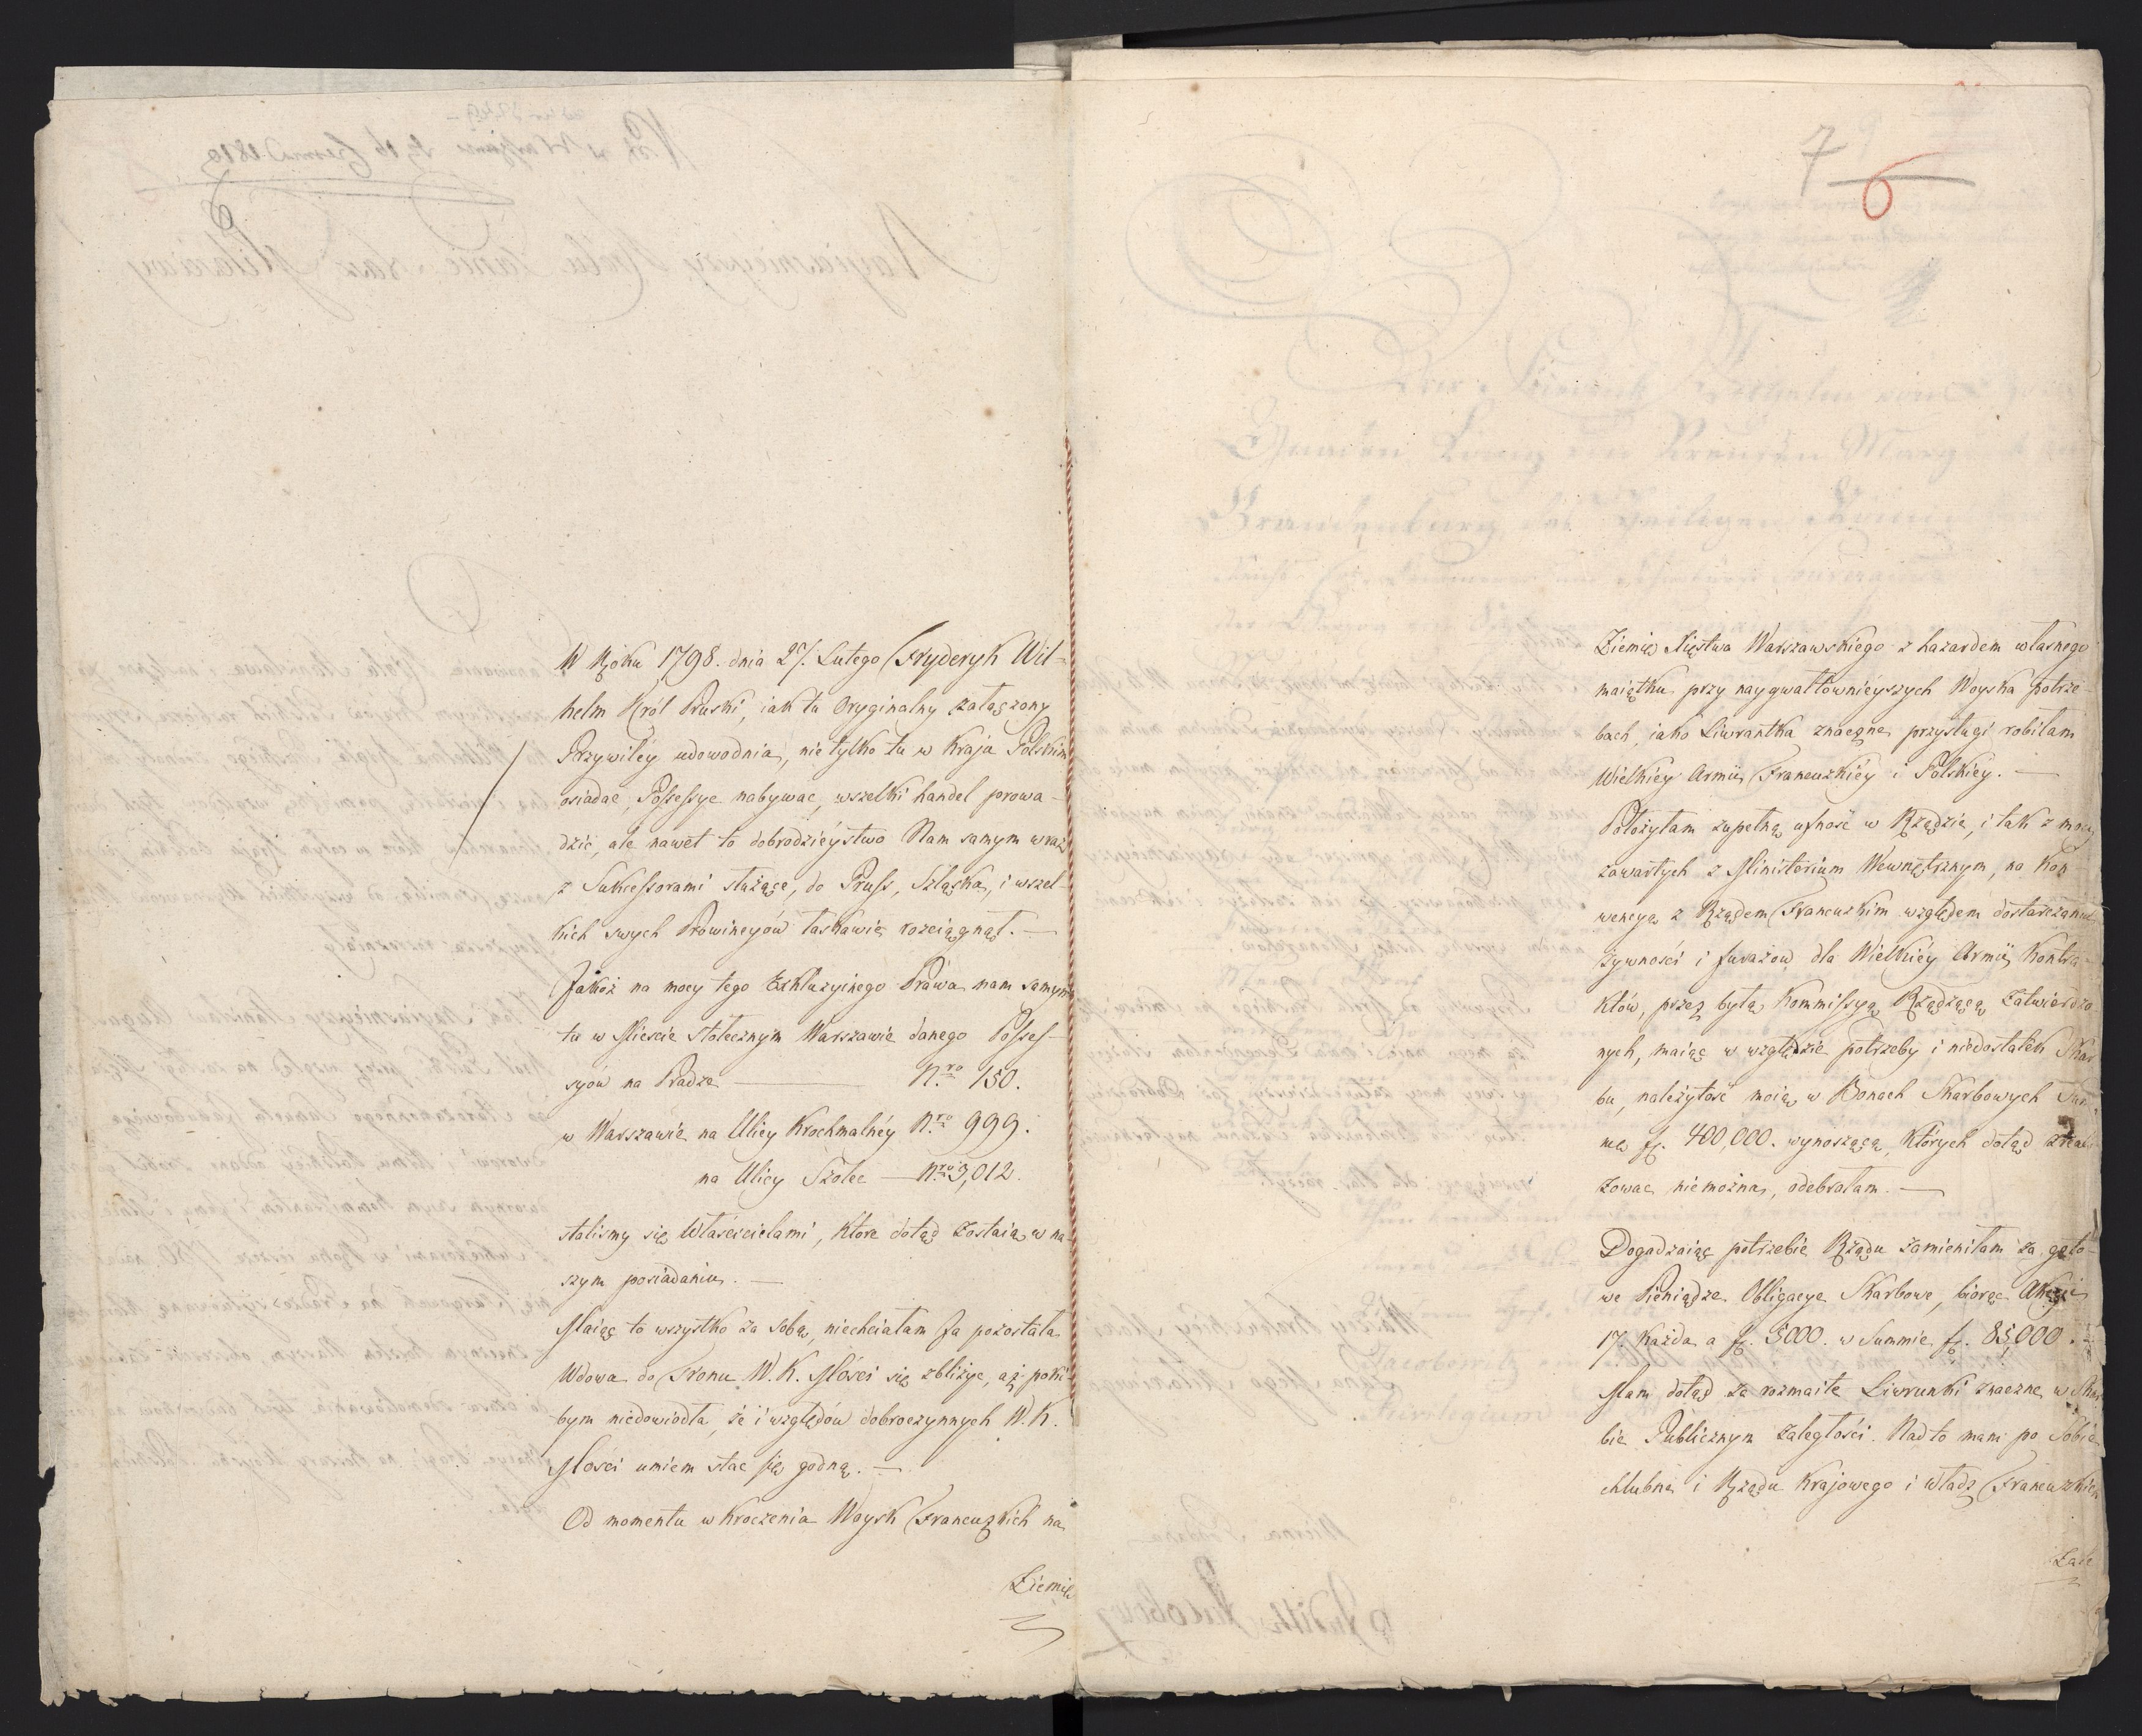 W Roku 1798. dnia 27. Lutego Fryderyk Wil-
helm Król Pruski, iak tu Oryginalny załączony
Przywiléy udowodnia, nie tylko tu w Kraju Polskim
osiadać, Possessye nabywać, wszelki handel prowa-
dzić, ale nawet to dobrodzieystwo Nam samym wraz
z Sukcessorami służące, do Pruss, Szląska, i wszel-
kich swych Prowincyów łaskawie rozciągnął. —
Jakoż na mocy tego Exkluzyinego Prawa nam samym
tu w Mieście Stołecznym Warszawie danego Posses-
syów na Pradze — N.ro 150.
w Warszawie na Ulicy Krochmalnéy N.ro 999.
na Ulicy Szolec — N.ro 3,012.
staliśmy się Właścicielami, które dotąd zostaią w na-
szym posiadaniu. —
Maiąc to wszystko za sobą, niechciałam Ja pozostała
Wdowa do Tronu W. K. Mości się zbliżyć, aż póki
bym niedowiodła, że i względów dobroczynnych W. K.
Mości umiem stać się godną. —
Od momentu wkroczenia Woysk Francuzkich na
Ziemię
7
6
Ziemię Xięstwa Warszawskiego z hazardem własnego
maiątku przy naygwałtownieyszych Woyska potrze-
bach, iako Liwrantka znaczne przysługi robiłam
Wielkiey Armii Francuzkiéy i Polskiéy. —
Położyłam zupełną ufność w Rządzie, i tak z mocy
zawartych z Ministerium Wewnętrznym, na Kon-
wencyą z Rządem Francuzkim względem dostarczania
żywności i furażów dla Wielkiéy Armii Kontra-
któw, przez byłą Kommissyą Rządzącą Zatwierdzo-
nych, maiąc w względzie potrzeby i niedostatek Skar-
bu, należytość moią w Bonach Skarbowych Sum-
mę fl. 400,000. wynoszącą, których dotąd zreali-
zować niemożna, odebrałam. —
Dogadzaiąc potrzebie Rządu zamieniłam za goto-
we Pieniądze Obligacye Skarbowe, biorąc Akcyi
17. każda a fl. 5000. w Summie fl. 85,000. —
Mam dotąd za rozmaite Liwrunki znaczne w Skar-
bie Publicznym zaległości. Nadto mam po Sobie
chlubne i Rządu Krajowego i władz Francuzkich